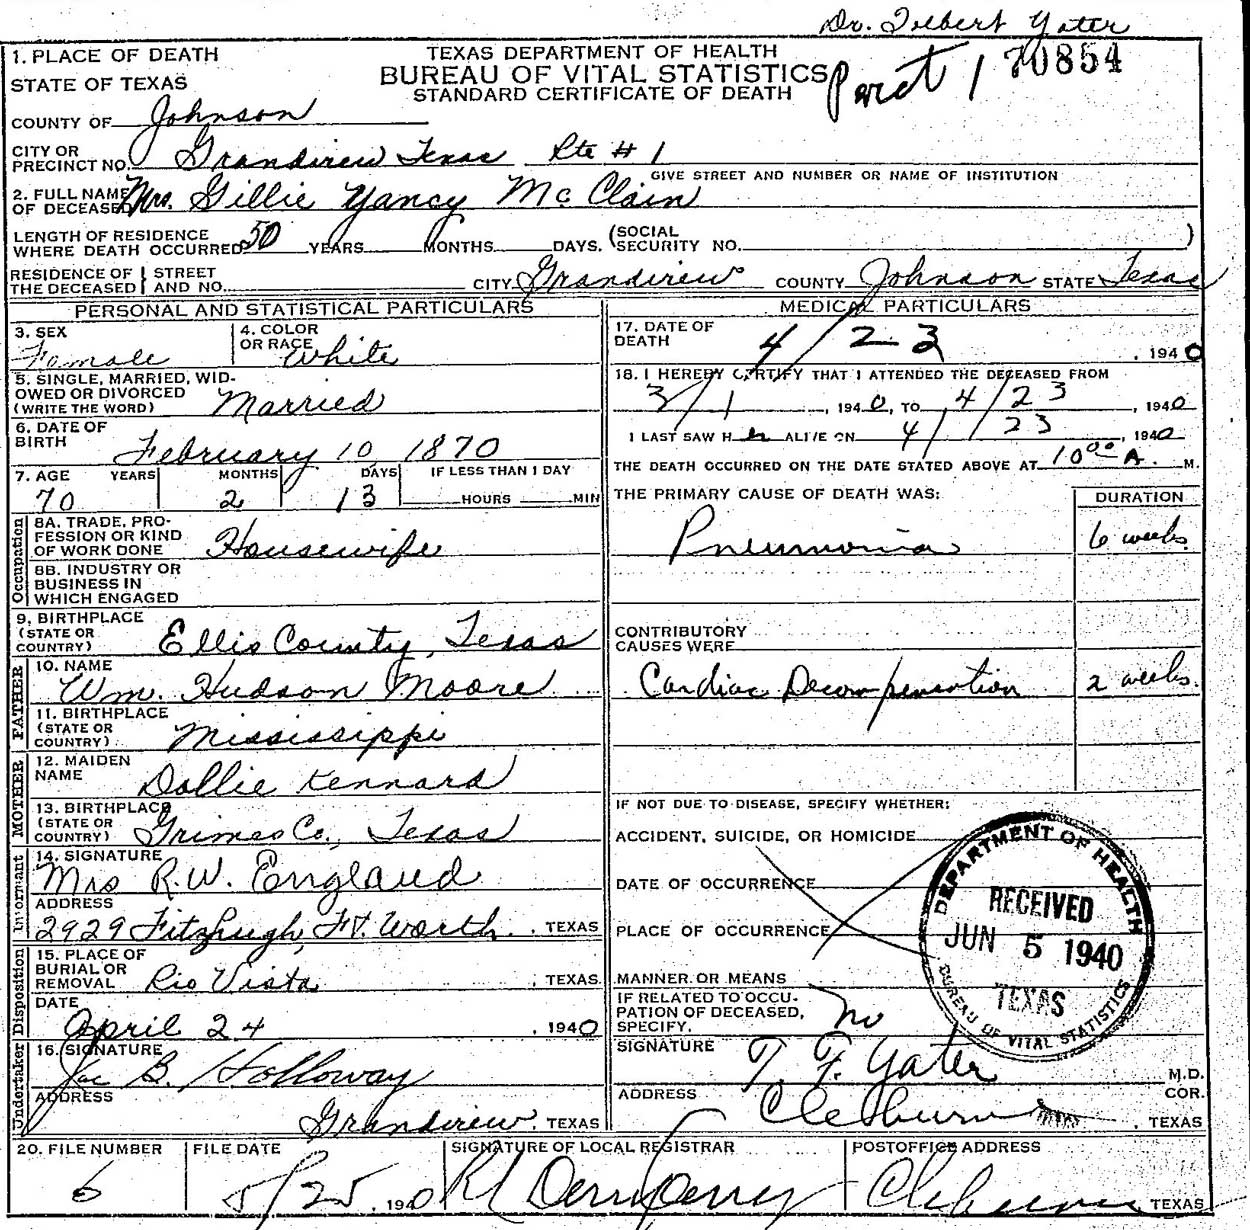 Dr. Tolbert Yater
1. PLACE OF DEATH
STATE OF TEXAS
TEXAS DEPARTMENT OF HEALTH
BUREAU OF VITAL STATISTICS
STANDARD CERTIFICATE OF DEATH
Prect 1 70854
COUNTY OF Johnson
CITY OR PRECINCT NO. Grandview Texas Rte # 1
GIVE STREET AND NUMBER OR NAME OF INSTITUTION
2. FULL NAME OF DECEASED Mrs. Gillie Yancy McClain
LENGTH OF RESIDENCE WHERE DEATH OCCURRED 50 YEARS MONTHS DAYS. (SOCIAL SECURITY NO. )
RESIDENCE OF THE DECEASED STREET AND NO. CITY Grandview COUNTY Johnson STATE Texas
PERSONAL AND STATISTICAL PARTICULARS
3. SEX Female
4. COLOR OR RACE White
5. SINGLE, MARRIED, WIDOWED OR DIVORCED (WRITE THE WORD) Married
6. DATE OF BIRTH February 10 1870
7. AGE YEARS MONTHS DAYS IF LESS THAN 1 DAY
70 2 13 HOURS MIN
Occupation
8A. TRADE, PROFESSION OR KIND OF WORK DONE Housewife
8B. INDUSTRY OR BUSINESS IN WHICH ENGAGED
9. BIRTHPLACE (STATE OR COUNTRY) Ellis County, Texas
FATHER
10. NAME Wm. Hudson Moore
11. BIRTHPLACE (STATE OR COUNTRY) Mississippi
MOTHER
12. MAIDEN NAME Dollie Kennard
13. BIRTHPLACE (STATE OR COUNTRY) Grimes Co., Texas
Informant
14. SIGNATURE Mrs R.W. England
ADDRESS 2929 Fitzhugh, Ft. Worth. , TEXAS
Disposition
15. PLACE OF BURIAL OR REMOVAL Rio Vista , TEXAS
DATE April 24 , 1940
Undertaker
16. SIGNATURE Jac B. Holloway
ADDRESS Grandview, TEXAS
MEDICAL PARTICULARS
17. DATE OF DEATH 4/23 , 1940
18. I HEREBY CERTIFY THAT I ATTENDED THE DECEASED FROM
3/1 , 1940, TO 4/23 , 1940
I LAST SAW Her ALIVE ON 4/23 , 1940
THE DEATH OCCURRED ON THE DATE STATED ABOVE AT 10 00 A. M.
THE PRIMARY CAUSE OF DEATH WAS: DURATION
Pneumonia 6 weeks.
CONTRIBUTORY CAUSES WERE
Cardiac Decompensation 2 weeks.
IF NOT DUE TO DISEASE, SPECIFY WHETHER:
ACCIDENT, SUICIDE, OR HOMICIDE
DATE OF OCCURRENCE
PLACE OF OCCURRENCE
MANNER OR MEANS
IF RELATED TO OCCUPATION OF DECEASED, SPECIFY. no
SIGNATURE T. F. Yater M.D. COR.
ADDRESS Cleburne , TEXAS
DEPARTMENT OF HEALTH
RECEIVED
JUN 5 1940
TEXAS
BUREAU OF VITAL STATISTICS
20. FILE NUMBER FILE DATE SIGNATURE OF LOCAL REGISTRAR POSTOFFICE ADDRESS
6 5/25, 1940 Cleburne, TEXAS